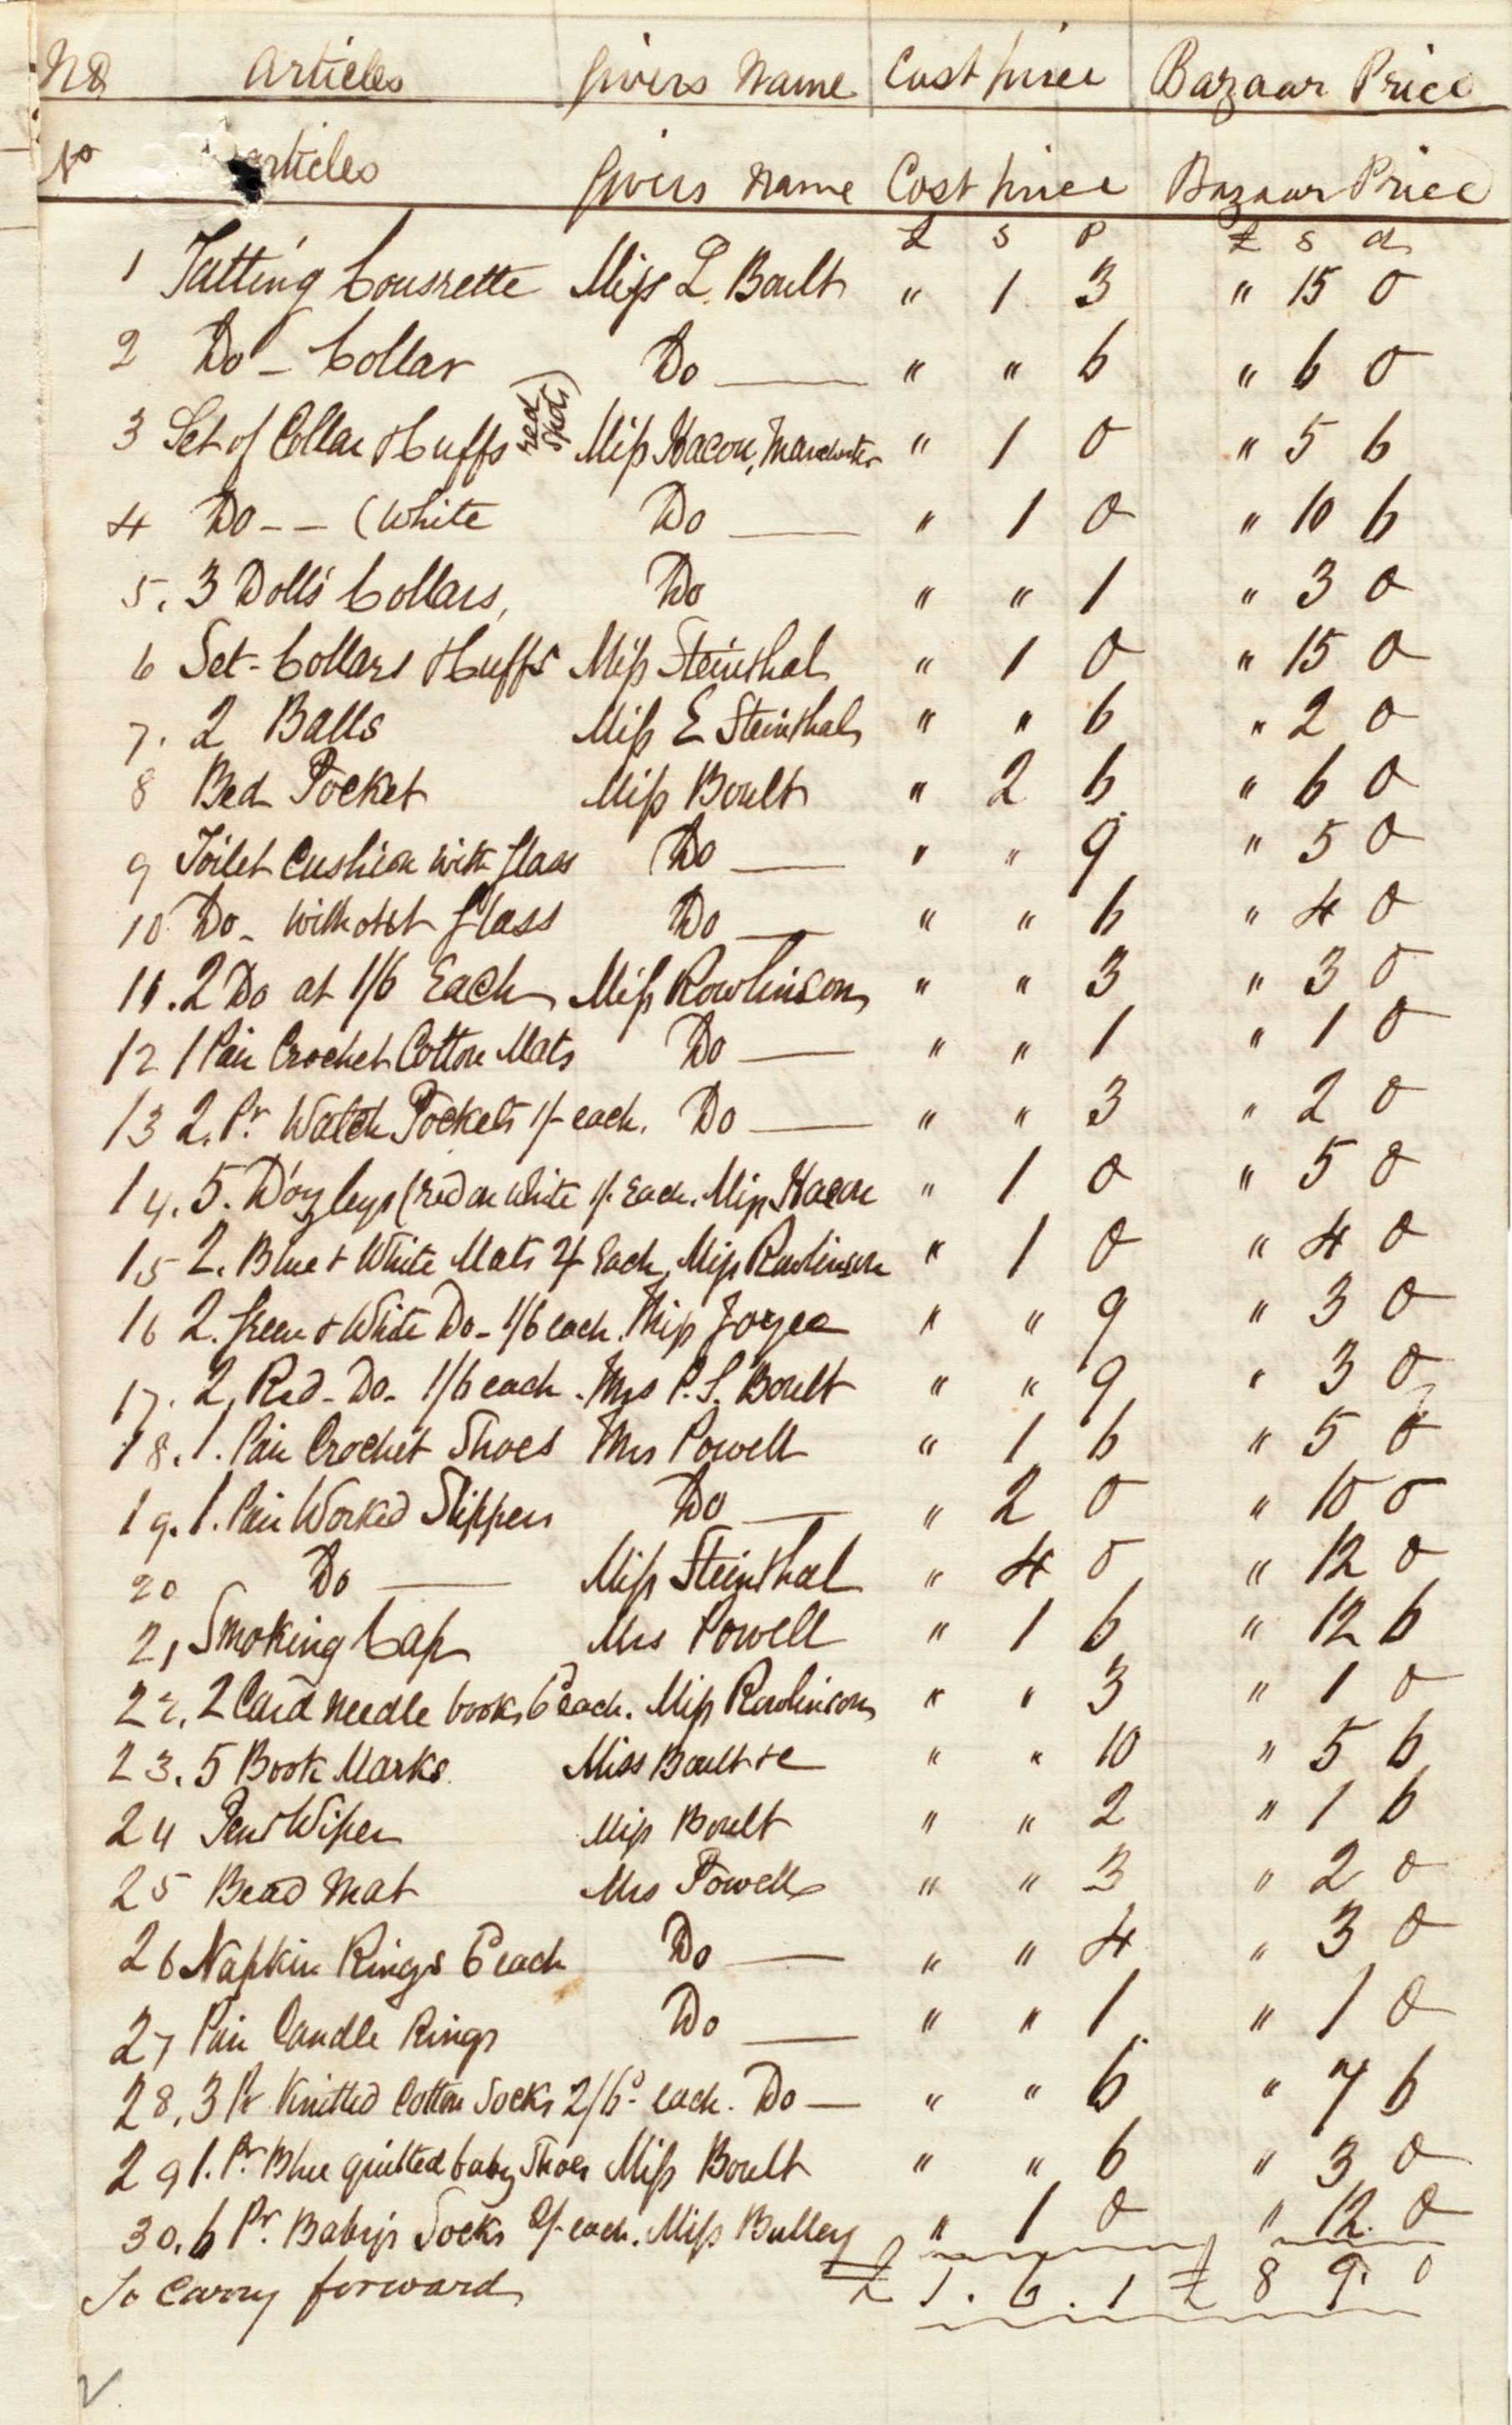 No Articles Givers Name Cost price Bazaar Price
No Articles Givers Name Cost price Bazaar Price
£ s p £ s d
1 Tatting Couvrette Miss L. Boult " 1 3 " 15 0
2 Do - Collar Do — " " 6 " 6 0
3 Set of Collar & Cuffs (red spots) Miss Hacon, Manchester " 1 0 " 5 6
4 Do - - (White Do — " 1 0 " 10 6
5. 3 Dolls' Collars, Do " " 1 " 3 0
6 Set - Collars & Cuffs Miss Steinthal " 1 0 " 15 0
7. 2 Balls Miss E Steinthal " " 6 " 2 0
8 Bed Pocket Miss Boult " 2 6 " 6 0
9 Toilet Cushion with glass Do — " " 9 " 5 0
10 Do - without Glass Do — " " 6 " 4 0
11. 2 Do at 1/6 Each Miss Rowlinson " " 3 " 3 0
12 1 Pair Crochet Cotton Mats Do — " " 1 " 1 0
13 2. Pr Watch Pockets 1/- each. Do — " " 3 " 2 0
14. 5. D'oyleys (red on white 1/- Each. Miss Hacon " 1 0 " 5 0
15 2. Blue & White Mats 2/- Each, Miss Rowlinson " 1 0 " 4 0
16 2. Green & White Do - 1/6 each. Miss Joyce " " 9 " 3 0
17. 2, Red - Do - 1/6 each. Mrs P. S. Boult " " 9 " 3 0
18. 1. Pair Crochet Shoes Mrs Powell " 1 6 " 5 0
19. 1. Pair Worked Slippers Do — " 2 0 " 10 0
20 Do — Miss Steinthal " 4 0 " 12 0
21 Smoking Cap Mrs Powell " 1 6 " 12 6
22. 2 Card needle books 6d each. Miss Rowlinson " " 3 " 1 0
23. 5 Book Marks. Miss Boult &c " " 10 " 5 6
24 Pen Wiper Miss Boult " " 2 " 1 6
25 Bead Mat Mrs Powell " " 3 " 2 0
26 Napkin Rings 6d each Do — " " 4 " 3 0
27 Pair Candle Rings Do — " " 1 " 1 0
28. 3 Pr Knitted Cotton Socks 2/6d each. Do — " " 6 " 7 6
29 1. Pr Blue quilted baby Shoes Miss Boult " " 6 " 3 0
30. 6 Pr. Baby's Socks 2/- each. Miss Bulley " 1 0 " 12. 0
To Carry forward £ 1. 6. 1 £ 8 9. 0